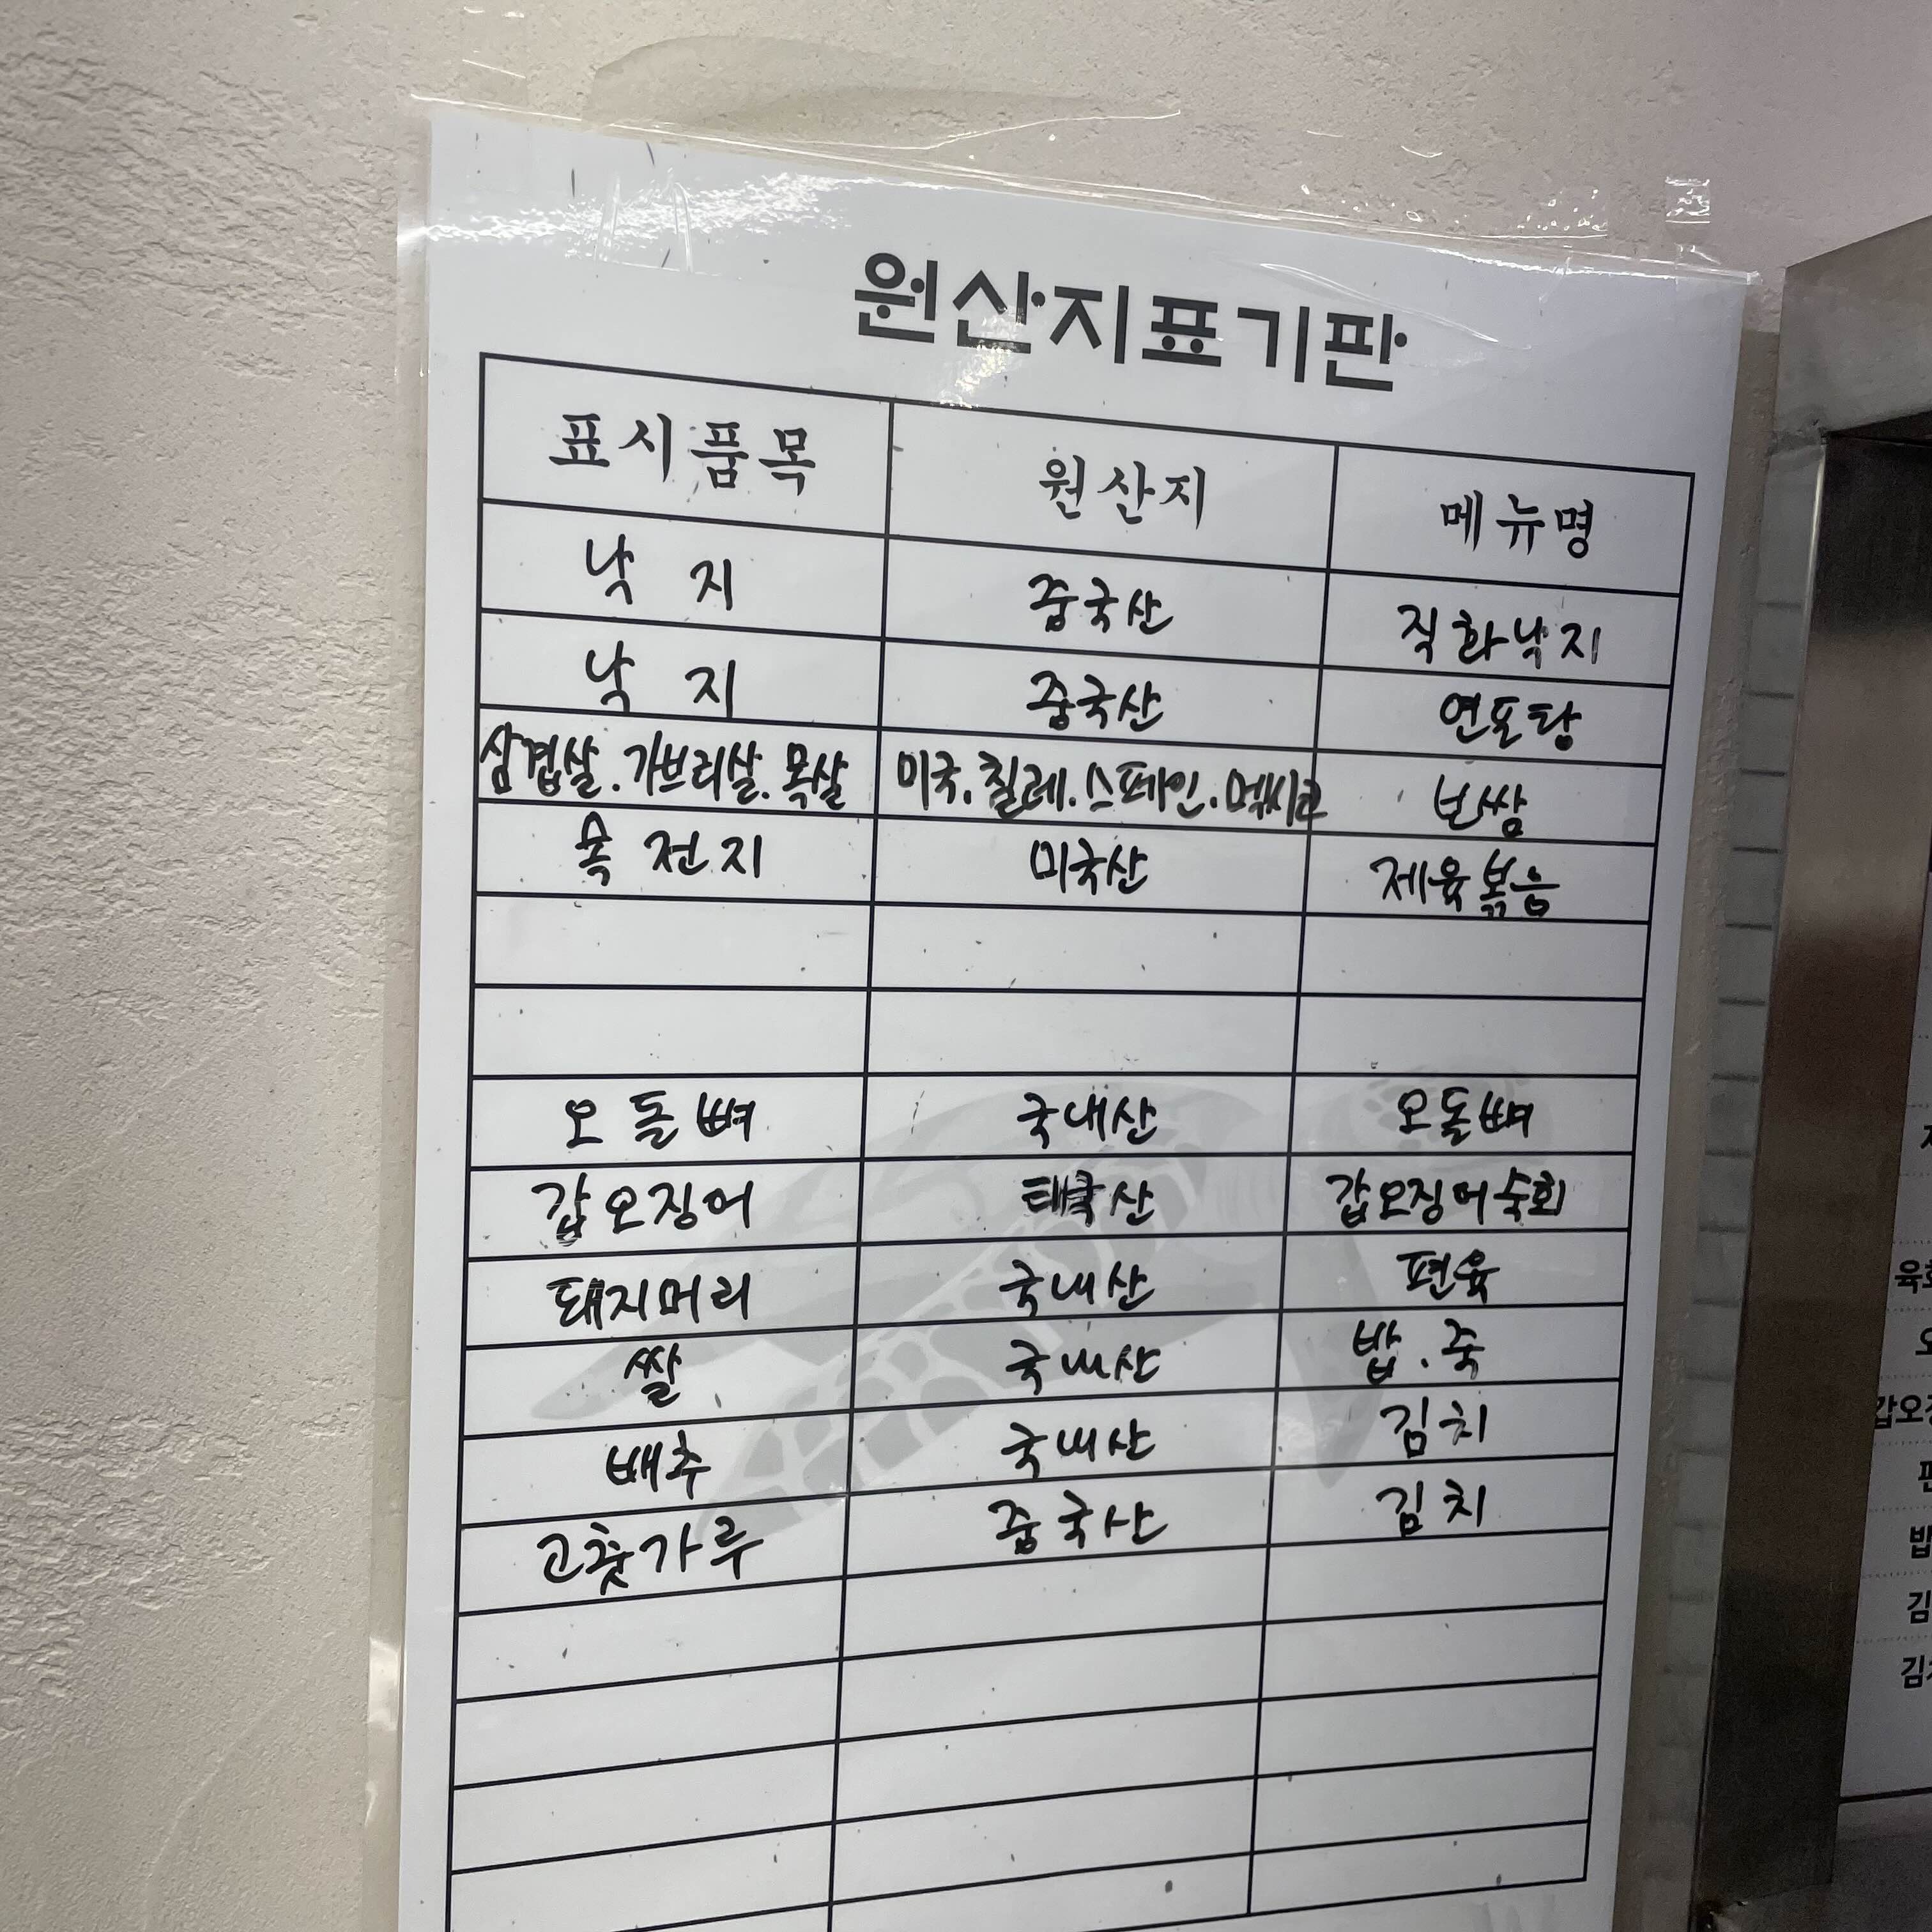 원산지표기판
표시품목 원산지 메뉴명
낙지 중국산 직화낙지
낙지 중국산 연포탕
삼겹살.가브리살.목살 미국.칠레.스페인.멕시코 보쌈
목전지 미국산 제육볶음
오돌뼈 국내산 오돌뼈
갑오징어 태국산 갑오징어숙회
돼지머리 국내산 편육
쌀 국내산 밥.죽
배추 국내산 김치
고춧가루 중국산 김치